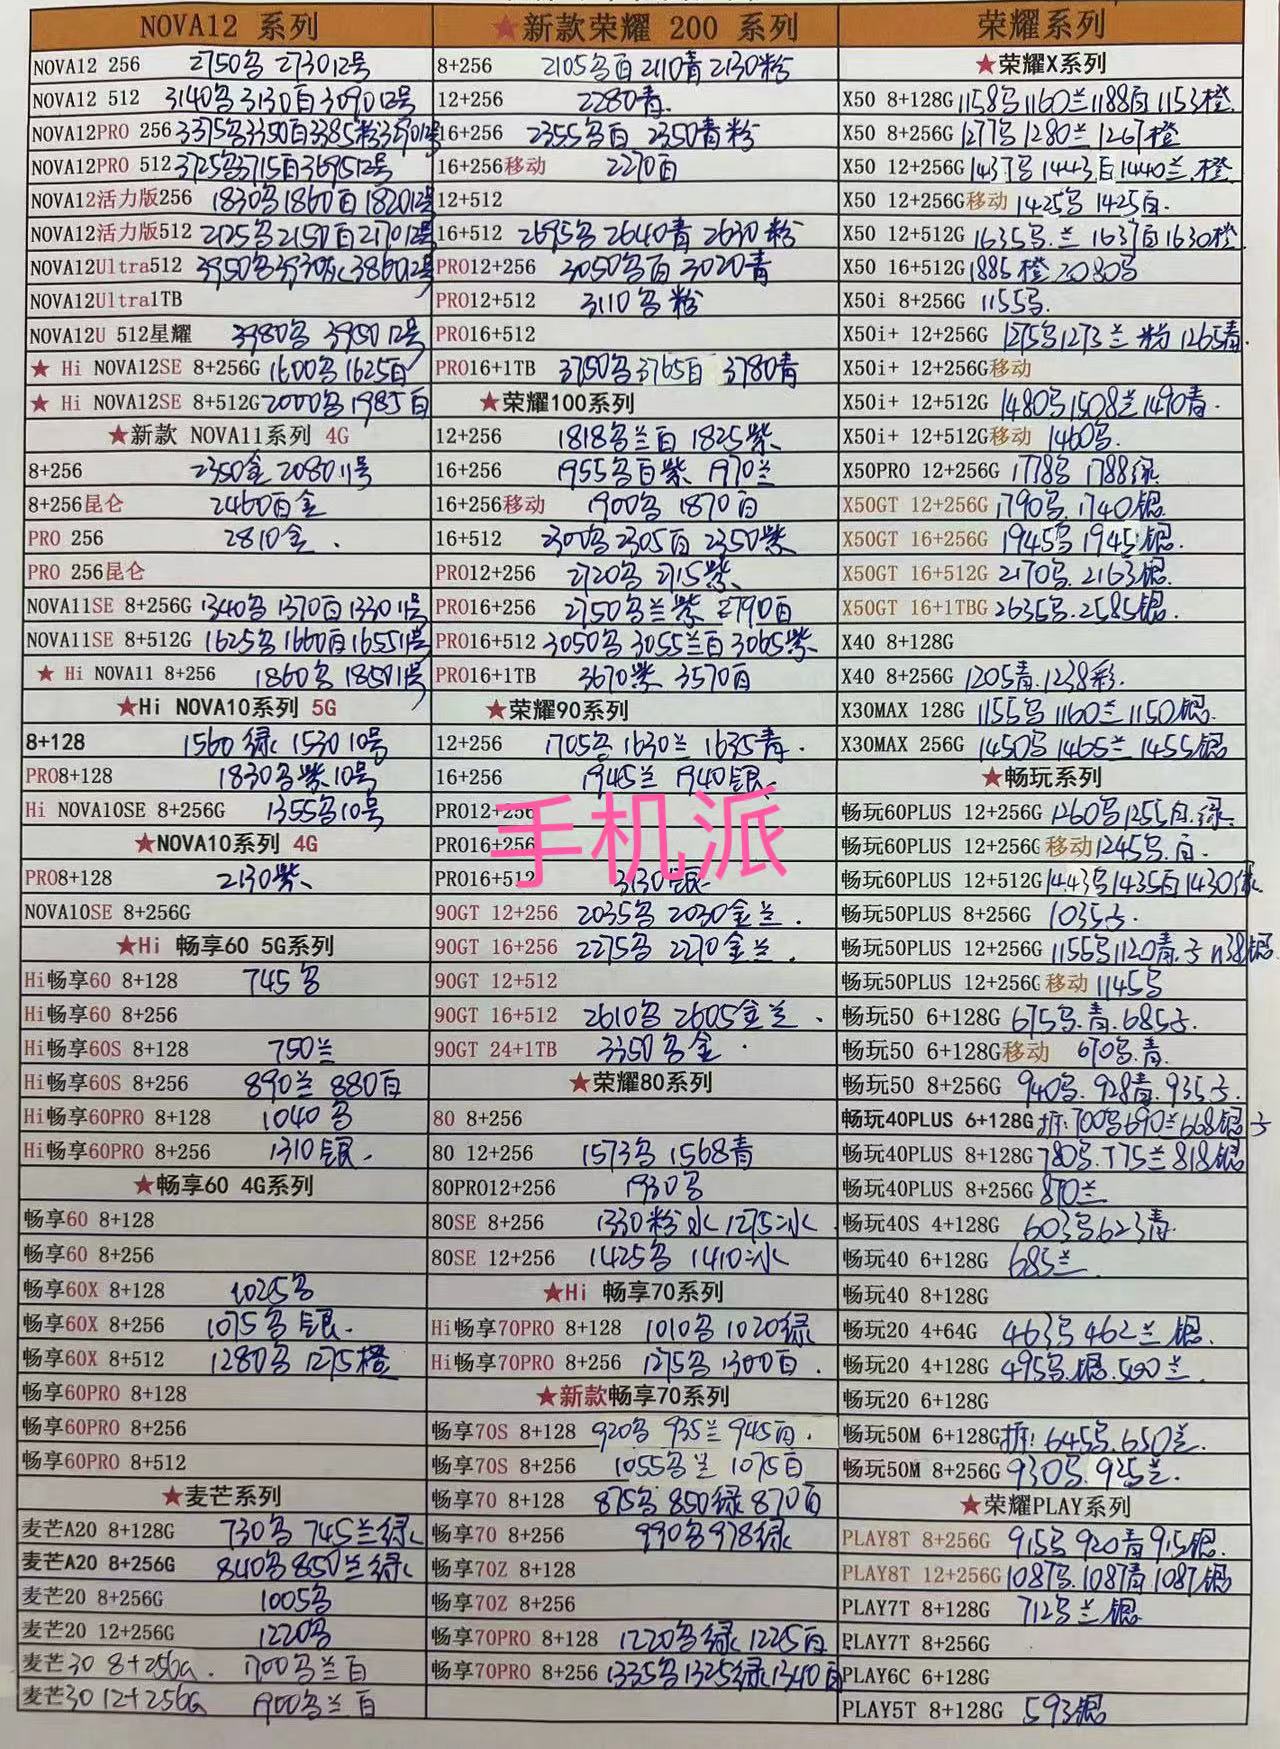 NOVA12 系列
NOVA12 256 2750名 2730 12号
NOVA12 512 3140名 3130百 3090 12号
NOVA12PRO 256 3375名 3350百 3385粉
NOVA12PRO 512 3725名 3715百 3695 12号
NOVA12活力版256 1830名 1860百 1820 12号
NOVA12活力版512 2125名 2150百 2170 12号
NOVA12Ultra512 3950名 3930灰 3860 12号
NOVA12Ultra1TB
NOVA12U 512星耀 3980名 3950 12号
★ Hi NOVA12SE 8+256G 1600名 1625百
★ Hi NOVA12SE 8+512G 2000名 1985百
★新款 NOVA11系列 4G
8+256 2350金 2080 11号
8+256昆仑 2460百金
PRO 256 2810金.
PRO 256昆仑
NOVA11SE 8+256G 1340名 1370百 1330 11号
NOVA11SE 8+512G 1625名 1660百 1655 11号
★ Hi NOVA11 8+256 1860名 1850 11号
★Hi NOVA10系列 5G
8+128 1560绿 1530 10号
PRO8+128 1830名紫 10号
Hi NOVA10SE 8+256G 1355名 10号
★NOVA10系列 4G
PRO8+128 2130紫
NOVA10SE 8+256G
★Hi 畅享60 5G系列
Hi畅享60 8+128 745名
Hi畅享60 8+256
Hi畅享60S 8+128 750兰
Hi畅享60S 8+256 890兰 880百
Hi畅享60PRO 8+128 1040名
Hi畅享60PRO 8+256 1310银.
★畅享60 4G系列
畅享60 8+128
畅享60 8+256
畅享60X 8+128 1025名
畅享60X 8+256 1075名 银.
畅享60X 8+512 1280名 1275橙
畅享60PRO 8+128
畅享60PRO 8+256
畅享60PRO 8+512
★麦芒系列
麦芒A20 8+128G 730名 745兰绿
麦芒A20 8+256G 840名 850兰绿
麦芒20 8+256G 1005名
麦芒20 12+256G 1220名
麦芒30 8+256G. 1700名兰百
麦芒30 12+256G 1900名兰百
★新款荣耀 200 系列
8+256 2105名百 2110青 2130粉
12+256 2280青.
16+256 2355名百 2350青粉
16+256移动 2270百
12+512
16+512 2695名 2640青 2630粉
PRO12+256 3050名百 3020青
PRO12+512 3110名粉
PRO16+512
PRO16+1TB 3750名 3765百 3780青
★荣耀100系列
12+256 1818名兰百 1825紫
16+256 1955名百紫 1970兰
16+256移动 1900名 1870百
16+512 2300名 2305百 2350紫
PRO12+256 2720名 2715紫
PRO16+256 2750名兰紫 2790百
PRO16+512 3050名 3055兰百 3065紫
PRO16+1TB 3670紫 3570百
★荣耀90系列
12+256 1705名 1630兰 1635青.
16+256 1945兰 1940银
PRO12+256
手机派
PRO16+256
PRO16+512 3130银
90GT 12+256 2035名 2030金兰.
90GT 16+256 2275名 2270金兰.
90GT 12+512
90GT 16+512 2610名 2605金兰.
90GT 24+1TB 3350名金.
★荣耀80系列
80 8+256
80 12+256 1573名 1568青
80PRO12+256 1930名
80SE 8+256 1330粉水 1275冰
80SE 12+256 1425名 1410冰
★Hi 畅享70系列
Hi畅享70PRO 8+128 1010名 1020绿
Hi畅享70PRO 8+256 1275名 1300百.
★新款畅享70系列
畅享70S 8+128 920名 935兰 945百.
畅享70S 8+256 1055名兰 1075百
畅享70 8+128 875名 850绿 870百
畅享70 8+256 990名 978绿
畅享70Z 8+128
畅享70Z 8+256
畅享70PRO 8+128 1220名绿 1225百
畅享70PRO 8+256 1335名 1325绿 1340百
荣耀系列
★荣耀X系列
X50 8+128G 1158名 1160兰 1188百 1153橙
X50 8+256G 1277名 1280兰 1267橙
X50 12+256G 1437名 1443百 1440兰.橙
X50 12+256G移动 1425名 1425百.
X50 12+512G 1635名.兰 1637百 1630橙
X50 16+512G 1885橙 2080名
X50i 8+256G 1155名.
X50i+ 12+256G 1275名 1273兰 粉 1265青.
X50i+ 12+256G移动
X50i+ 12+512G 1480名 1508兰 1490青.
X50i+ 12+512G移动 1460名.
X50PRO 12+256G 1778名 1788绿
X50GT 12+256G 1790名. 1740银
X50GT 16+256G 1945名 1945银.
X50GT 16+512G 2170名. 2163银
X50GT 16+1TBG 2635名. 2585银.
X40 8+128G
X40 8+256G 1205青. 1238彩.
X30MAX 128G 1155名 1160兰 1150银.
X30MAX 256G 1450名 1465兰 1455银
★畅玩系列
畅玩60PLUS 12+256G 1260名 1255百.绿
畅玩60PLUS 12+256G 移动 1245名.百.
畅玩60PLUS 12+512G 1443名 1435百 1430绿
畅玩50PLUS 8+256G 1035子.
畅玩50PLUS 12+256G 1155名 1120青.子 1138银
畅玩50PLUS 12+256G 移动 1145名
畅玩50 6+128G 675名.青.685子.
畅玩50 6+128G移动 670名.青.
畅玩50 8+256G 940名. 928青. 935子.
畅玩40PLUS 6+128G 拆:700名 690兰 668银 子
畅玩40PLUS 8+128G 780名. 775兰 818银
畅玩40PLUS 8+256G 870兰
畅玩40S 4+128G 603名 623青.
畅玩40 6+128G 685兰
畅玩40 8+128G
畅玩20 4+64G 463名 462兰 银.
畅玩20 4+128G 495名.银.500兰.
畅玩20 6+128G
畅玩50M 6+128G 拆: 645名.650兰.
畅玩50M 8+256G 930名. 925兰.
★荣耀PLAY系列
PLAY8T 8+256G 915名 920青 915银.
PLAY8T 12+256G 1087名. 1087青 1087银
PLAY7T 8+128G 712名兰 银
PLAY7T 8+256G
PLAY6C 6+128G
PLAY5T 8+128G 593银